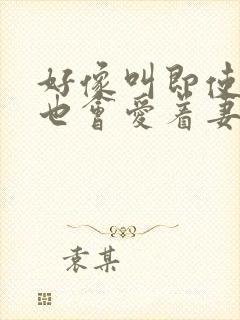 好像叫即使
也會愛着妻
袁某